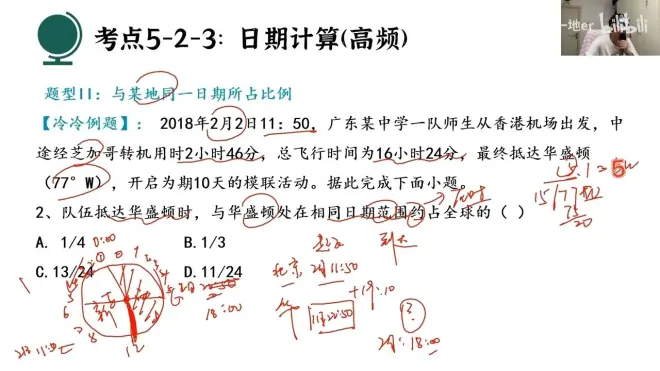 考点5-2-3：日期计算(高频)
-地er bilibili
题型II：与某地同一日期所占比例
【冷冷例题】： 2018年2月2日11：50，广东某中学一队师生从香港机场出发，中
途经芝加哥转机用时2小时46分，总飞行时间为16小时24分，最终抵达华盛顿
（77°W），开启为期10天的模联活动。据此完成下面小题。
2、队伍抵达华盛顿时，与华盛顿处在相同日期范围约占全球的（ ）
A. 1/4 B. 1/3
C. 13/24 D. 11/24
5.1=5W
15/77
75
20
0:00
北京 2月 11:50
到达
华
+19:10
18:00
2月 18:00
12
6
8